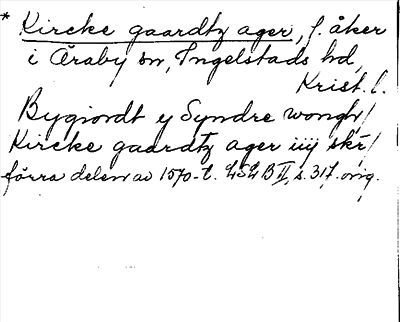 * Kircke gaardtz ager, f. åker
i Öraby sn, Ingelstads hd,
Krist. l.
Bygiordt y Syndre wongh /
Kircke gaardtz ager iiij skr /
förra delen av 1570-t. LSLB II, s. 317. orig.